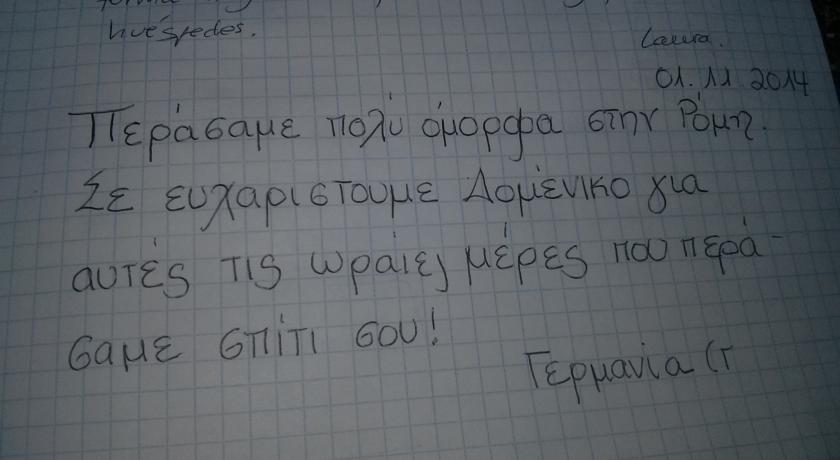 huéspedes.
Laura.
01.11.2014
Περάσαμε πολύ όμορφα στην Ρόμη.
Σε ευχαριστουμε Δομένικο για
αυτές τις ωράιες μέρες που περά-
σαμε σπίτι σου!
Γερμανία (τ